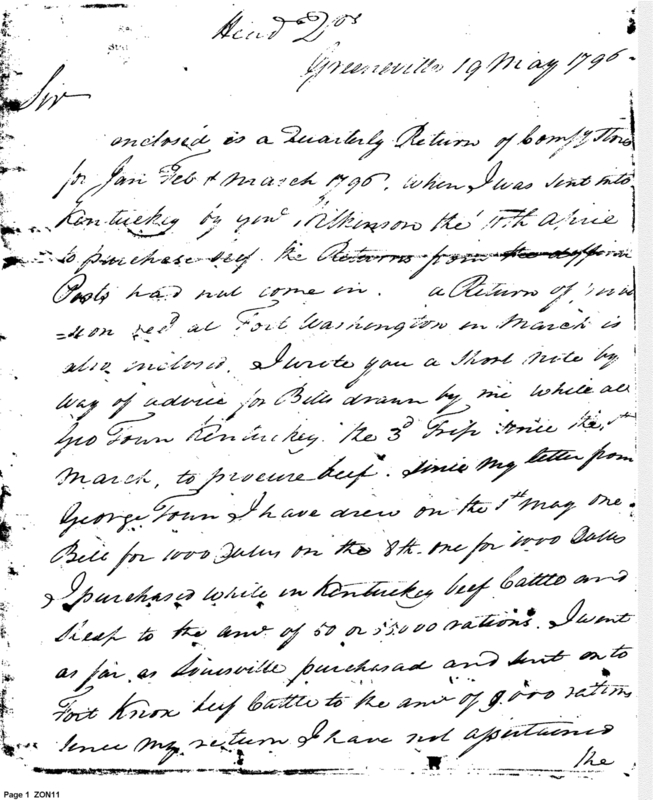 Head Qrs
Greeneville 19 May 1796
Sir
enclosed is a Quarterly Return of Comsy Stores
for Jan Feb & March 1796. When I was sent into
Kentuckey by Genl Wilkinson the 10th April
to purchase beef the Returns from the differen
Posts had not come in. a Return of
=sion recd at Fort Washington in March is
also enclosed. I wrote you a Short note by
way of advice for Bills drawn by me while at
Geo Town Kentuckey. the 3d Trip since the 1st
March, to procure beef. Since my letter from
George Town I have drew on the 1st May one
Bill for 1000 Dollrs on the 8th one for 1000 Dollrs
I purchased while in Kentuckey beef Cattle and
Sheep to the amt of 50 or 55000 rations. I went
as far as Louisville purchased and sent on to
Fort Knox beef Cattle to the amt of 9.000 rations
Since my return I have not assertained
the
Page 1 ZON11